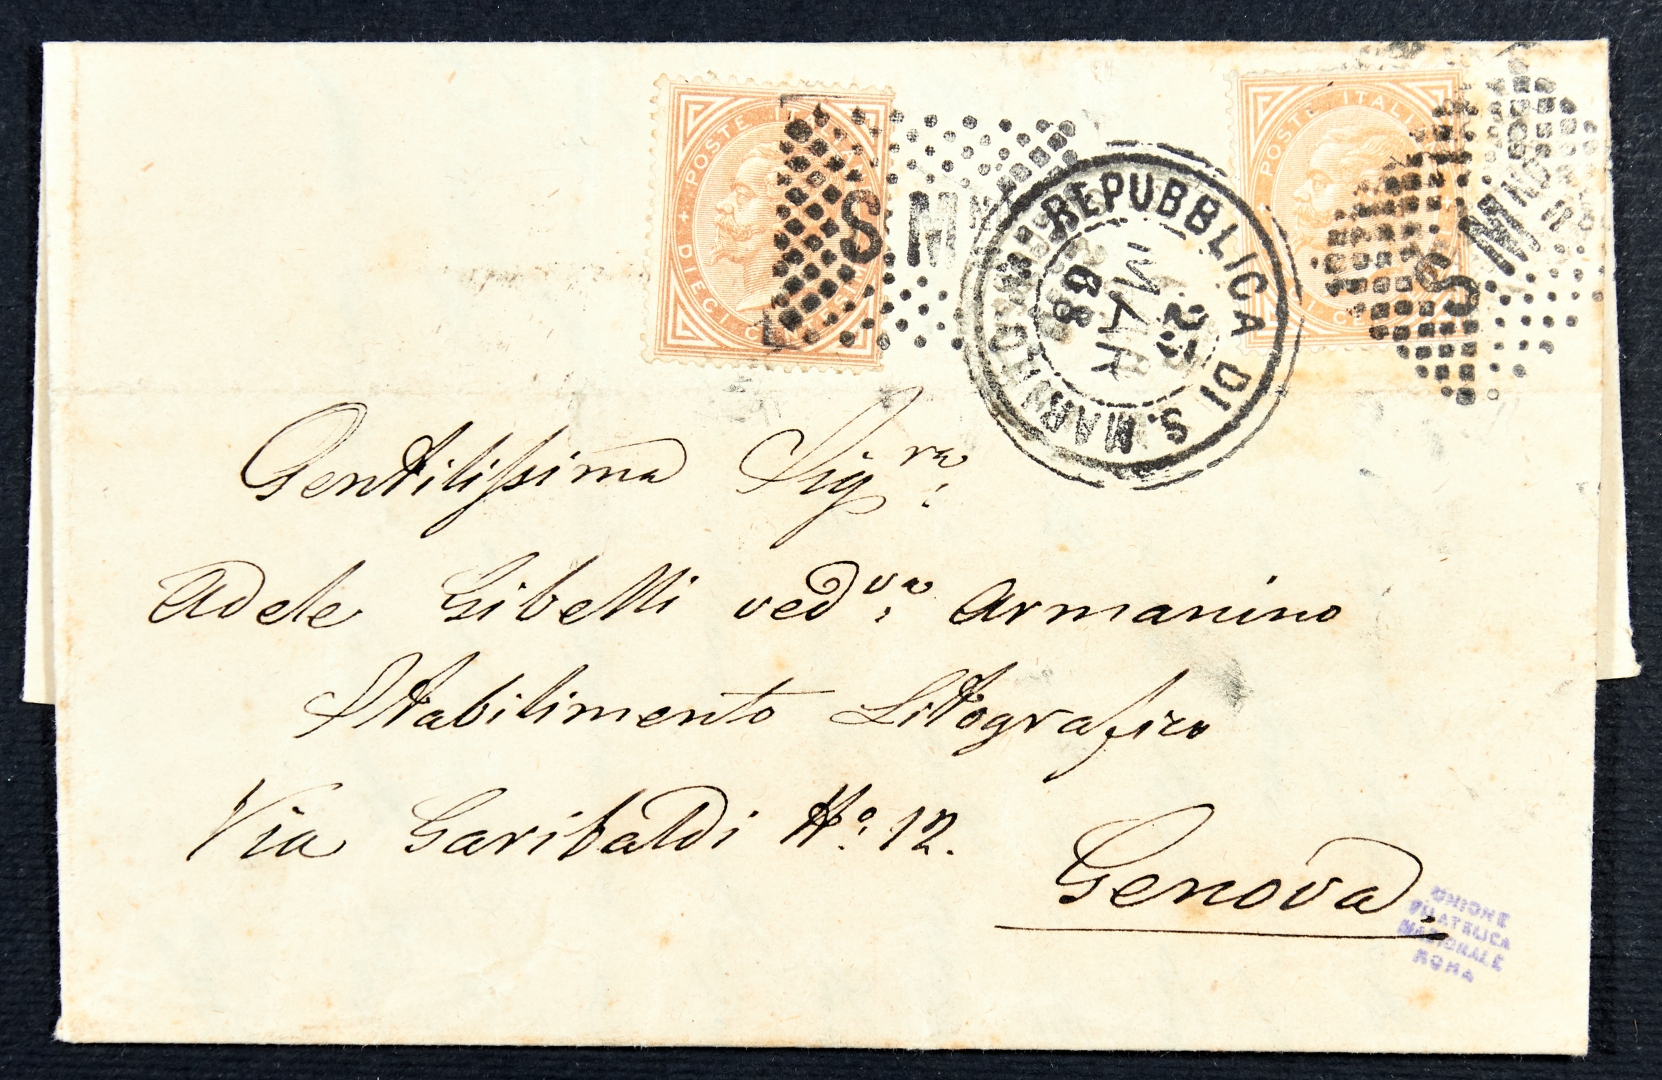 POSTE ITALIANE
DIECI CENTESIMI
POSTE ITALI
CE
S MNO
S MNO
REPUBBLICA DI S. MARINO
23
MAR
68
Gentilissima Sigra.
Adele Gibelli vedva. Armanino
Stabilimento Litografico
Via Garibaldi No. 12.
Genova.
UNIONE
FILATELICA
NAZIONALE
ROMA